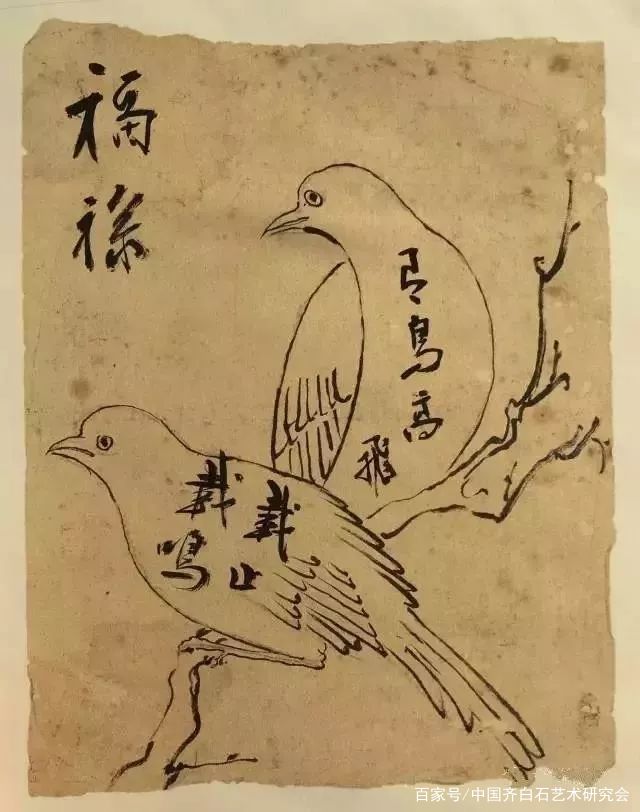 福祿
鳥高
飛
載止
載鳴
百家号/中国齐白石艺术研究会